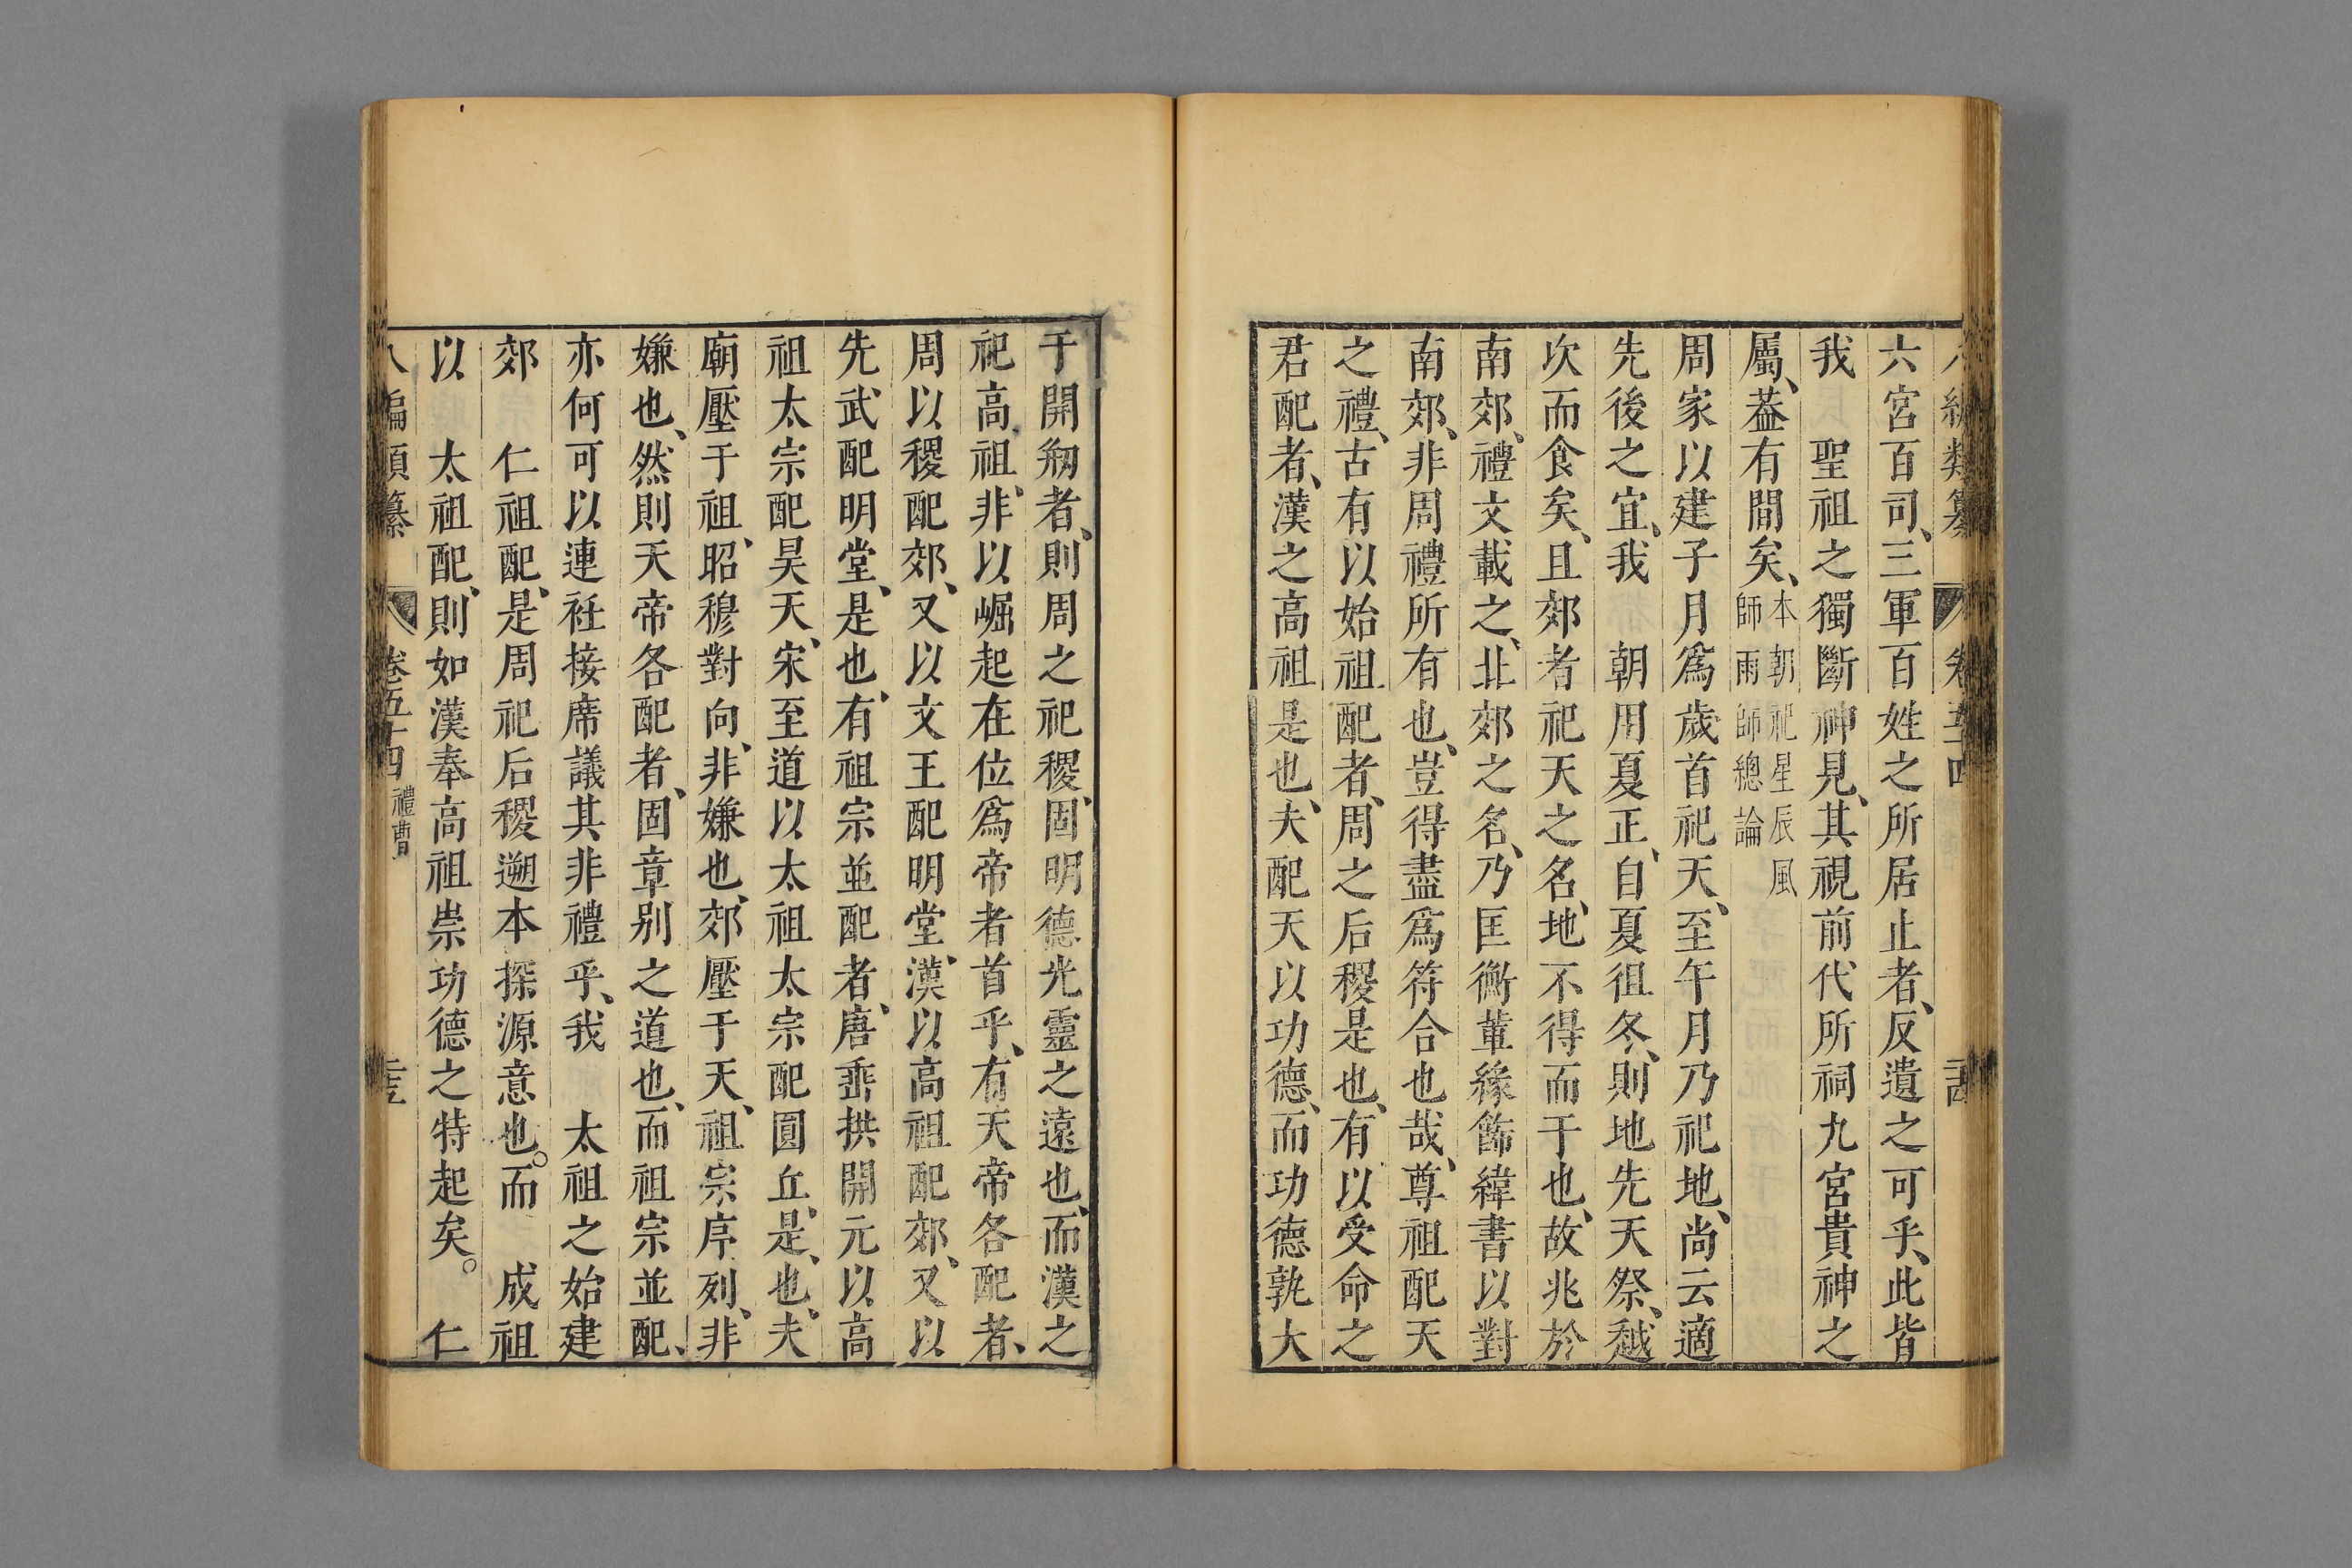 六宮百司、三軍百姓之所居止者、反遺之可乎、此皆
我　聖祖之獨斷神見、其視前代所祠九宮貴神之
屬、葢有間矣、本朝祀星辰風
師雨師總論
周家以建子月爲歲首祀天、至午月乃祀地、尚云適
先後之宜、我　朝用夏正、自夏徂冬、則地先天祭、越
次而食矣、且郊者祀天之名、地不得而于也、故兆於
南郊、禮文載之、北郊之名、乃匡衡軰緣飾緯書以對
南郊、非周禮所有也、豈得盡爲符合也哉、尊祖配天
之禮、古有以始祖配者、周之后稷是也、有以受命之
君配者、漢之高祖是也、夫配天以功德、而功德孰大
于開剏者、則周之祀稷、固明德光靈之遠也、而漢之
祀高祖、非以崛起在位爲帝者首乎、有天帝各配者、
周以稷配郊、又以文王配明堂、漢以高祖配郊、又以
先武配明堂、是也、有祖宗並配者、唐垂拱開元以高
祖太宗配昊天、宋至道以太祖太宗配圓丘、是也、夫
廟壓于祖、昭穆對向、非嫌也、郊壓于天、祖宗序列、非
嫌也、然則天帝各配者、固章别之道也、而祖宗並配、
亦何可以連袵接席議其非禮乎、我　太祖之始建
郊　仁祖配、是周祀后稷遡本探源意也。而　成祖
以　太祖配、則如漢奉高祖崇功德之特起矣。　仁
八編類纂　卷五十四　禮曹